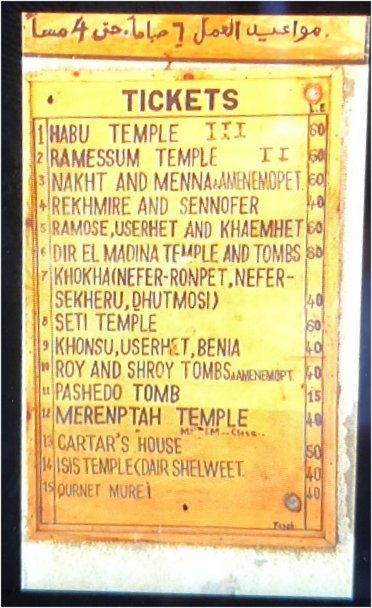 مواعيد العمل 6 صباحاً. حتى 4 مساءً.
TICKETS
L.E
1 HABU TEMPLE III 60
2 RAMESSUM TEMPLE II 60
3 NAKHT AND MENNA & AMENEMOPET. 60
4 REKHMIRE AND SENNOFER 40
5 RAMOSE, USERHET AND KHAEMHET 60
6 DIR EL MADINA TEMPLE AND TOMBS 80
7 KHOKHA (NEFER-RONPET, NEFER-
SEKHERU, DHUTMOSI) 40
8 SETI TEMPLE 60
9 KHONSU, USERHET, BENIA 40
10 ROY AND SHROY TOMBS & AMENEMOPT. 40
11 PASHEDO TOMB 15
12 MERENPTAH TEMPLE 40
13 CARTAR'S HOUSE 50
14 ISIS TEMPLE (DAIR SHELWEET. 40
15 QURNET MUREI 40